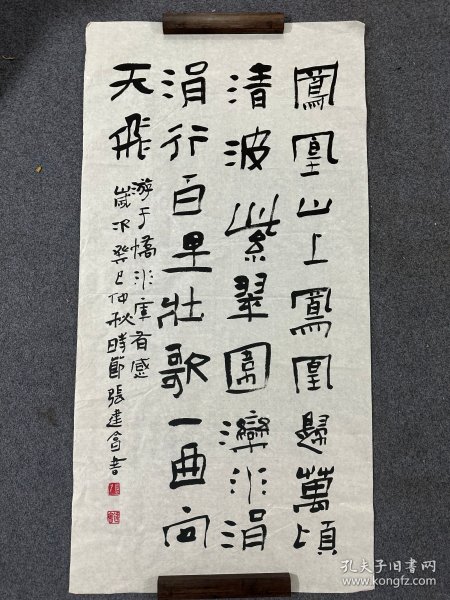 鳳凰山上鳳凰歸萬頃
清波紫翠圍灤水涓
涓行百里壯歌一曲向
天飛
游于憍水庫有感
歲次癸巳仲秋時節張建會書
孔夫子旧书网
www.kongfz.com